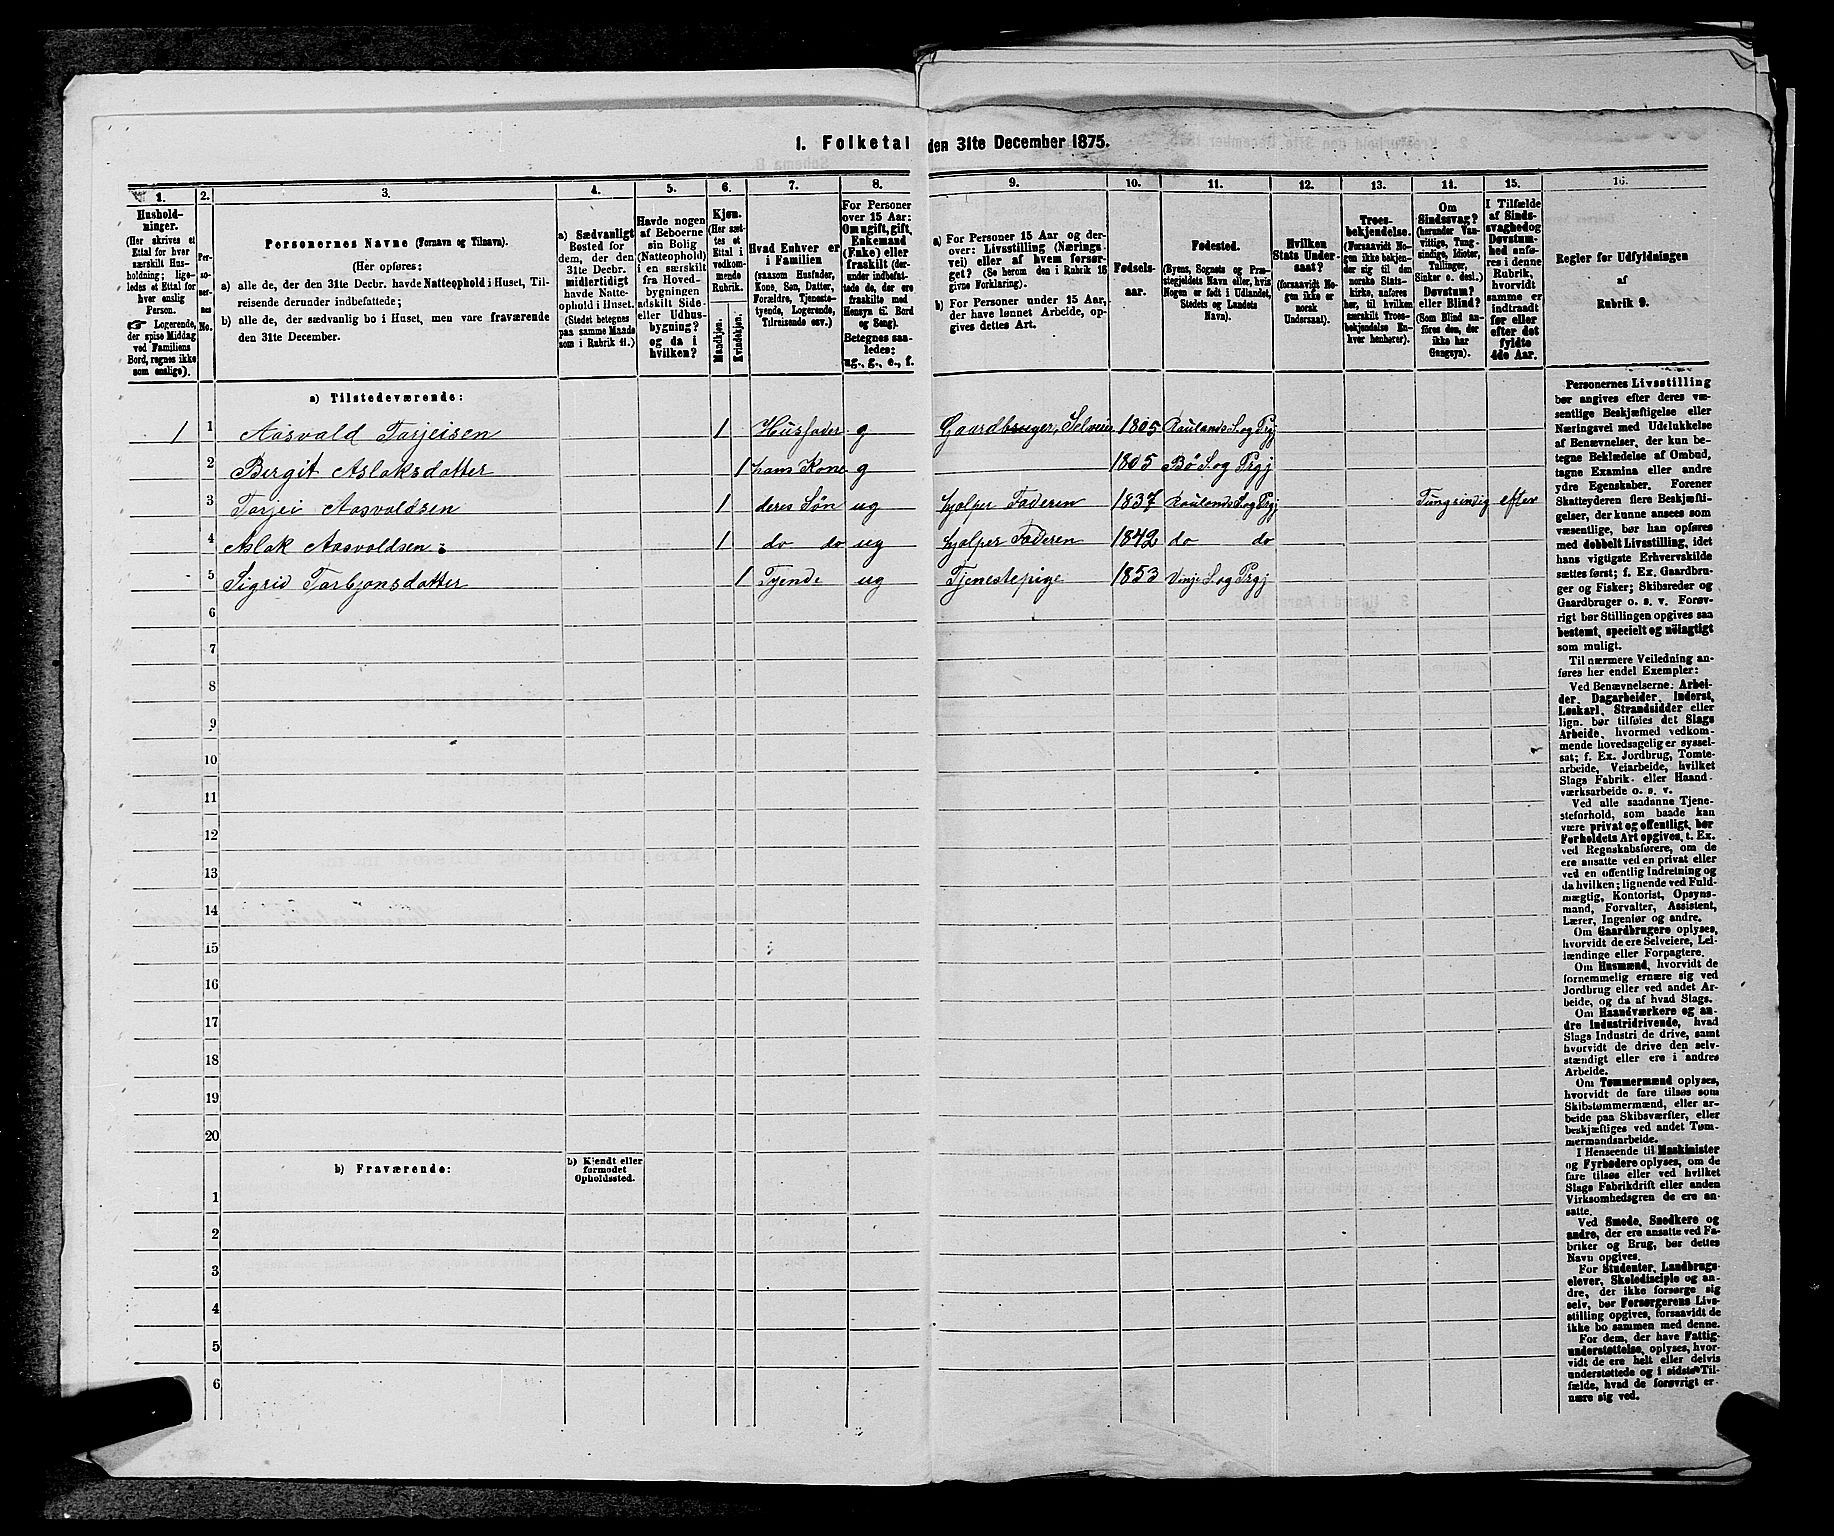 1. Folketal den 31te December 1875.
1. 2. 3. 4. 5. 6. 7. 8. 9. 10. 11. 12. 13. 14. 15. 16.
Hushold-
ninger.
(Her skrives et
Ettal for hver
særskilt Hus-
holdning; lige-
ledes et Ettal for
hver enslig
Person.
☞ Logerende,
der spise Middag
ved Familiens
Bord, regnes ikke
som enslige).
Per-
so-
ner-
nes
No.
Personernes Navne (Fornavn og Tilnavn).
(Her opføres:
a) alle de, der den 31te Decbr. havde Natteophold i Huset, Til-
reisende derunder indbefattede;
b) alle de, der sædvanlig bo i Huset, men vare fraværende
den 31te December.
a) Sædvanligt
Bosted for
dem, der den
31te Decbr.
midlertidigt
havde Natte-
ophold i Huset.
(Stedet betegnes
paa samme Maade
som i Rubrik 11.)
Havde nogen
af Beboerne
sin Bolig
(Natteophold)
i en særskilt
fra Hoved-
bygningen
adskilt Side-
eller Udhus-
bygning?
og da i
hvilken?
Kjøn.
(Her sæt-
tes et
Ettal i
vedkom-
mende
Rubrik.
Mandkjøn.
Kvindekjøn.
Hvad Enhver er
i Familien
(saasom Husfader,
Kone, Søn, Datter,
Forældre, Tjeneste-
tyende, Logerende,
Tilreisende osv.)
For Personer
over 15 Aar:
Om ugift, gift,
Enkemand
(Enke) eller
fraskilt (der-
under indbefat-
tede de, der ere
fraskilte med
Hensyn til Bord
og Seng).
Betegnes saa-
ledes:
ug., g., e., f.
a) For Personer 15 Aar og der-
over: Livsstilling (Nærings-
vei) eller af hvem forsør-
get? (Se herom den i Rubrik 16
givne Forklaring).
b) For Personer under 15 Aar,
der have lønnet Arbeide, op-
gives dettes Art.
Fødsels-
aar.
Fødested.
(Byens, Sognets og Præ-
stegjeldets Navn eller, hvis
Nogen er født i Udlandet,
Stedets og Landets
Navn).
Hvilken
Stats Under-
saat?
(forsaavidt No-
gen ikke er
norsk
Undersaat).
Troes-
bekjendelse.
(Forsaavidt No-
gen ikke bekjen-
der sig til den
norske Stats-
kirke, anføres
her, til hvilken
særskilt Troes-
bekjendelse En-
hver henhører).
Om
Sindssvag?
(herunder Van-
vittige, Tung-
sindige, Idioter,
Tullinger,
Sinker o. desl.)
Døvstum?
eller Blind?
(Som Blind an-
føres den, der
ikke har
Gangsyn).
I Tilfælde
af Sinds-
svaghed og
Døvstum-
hed anfø-
res i denne
Rubrik,
hvorvidt
samme er
indtraadt
før eller
efter det
fyldte
4de Aar.
Regler for Udfyldningen
af
Rubrik 9.
a) Tilstedeværende:
1 1 Aasvald Torjeisen 1 Husfader g Gaardbruger, Selveier 1805 Raulands S. og Prgj
2 Bergit Aslaksdatter 1 hans Kone g 1805 Bø S. og Prgj
3 Torjei Aasvaldsen 1 deres Søn ug hjælper Faderen 1837 Raulands S. og Prgj Tungsindig efter
4 Aslak Aasvaldsen 1 do do ug hjælper Faderen 1842 do do
5 Sigrid Torbjønsdatter 1 Tyende ug Tjenestepige 1853 Vinje S. og Prgj
6
7
8
9
10
11
12
13
14
15
16
17
18
19
20
b) Fraværende:
b) Kjendt eller
formodet
Opholdssted.
1
2
3
4
5
6
Personernes Livsstilling
bør angives efter deres væ-
sentlige Beskjæftigelse eller
Næringsvei med Udelukkelse
af Benævnelser, der kun be-
tegne Beklædelse af Ombud,
tagne Examina eller andre
ydre Egenskaber. Forener
Skatteyderen flere Beskjæfti-
gelser, der kunne ansees som
væsentlige, bør han opføres
med dobbelt Livsstilling, idet
hans vigtigste Erhvervskilde
sættes først; f. Ex. Gaardbru-
ger og Fisker; Skibsreder og
Gaardbruger o. s. v. Forøv-
rigt bør Stillingen opgives saa
bestemt, specielt og nøiagtigt
som muligt.
Til nærmere Veiledning an-
føres her endel Exempler:
Ved Benævnelserne: Arbei-
der, Dagarbeider, Inderst,
Løskarl, Strandsidder eller
lign. bør tilføies det Slags
Arbeide, hvormed vedkom-
mende hovedsagelig er syssel-
sat; f. Ex. Jordbrug, Tomte-
arbeide, Veiarbeide, hvilket
Slags Fabrik- eller Haand-
værksarbeide o. s. v.
Ved alle saadanne Tjene-
steforhold, som baade kan
være privat og offentligt, bør
Forholdets Art opgives, t. Ex.
ved Regnskabsførere, om de
ere ansatte ved en privat eller
ved en offentlig Indretning og
da hvilken; lignende ved Fuld-
mægtig, Kontorist, Opsyns-
mand, Forvalter, Assistent,
Lærer, Ingeniør og andre.
Om Gaardbrugere oplyses,
hvorvidt de ere Selveiere, Lei-
lændinge eller Forpagtere.
Om Husmænd, hvorvidt de
fornemmelig ernære sig ved
Jordbrug eller ved andet Ar-
beide, og da af hvad Slags.
Om Haandværkere og an-
dre Industridrivende, hvad
Slags Industri de drive, samt
hvorvidt de drive den selv-
stændigt eller ere i andres
Arbeide.
Om Tømmermænd oplyses,
hvorvidt de fare tilsøs som
Skibstømmermænd, eller ar-
beide paa Skibsværfter, eller
beskjæftiges ved andet Tøm-
mermandsarbeide.
I Henseende til Maskinister
og Fyrbødere oplyses, om de
fare tilsøs eller ved hvilket
Slags Fabrikdrift eller anden
Virksomhedsgren de ere an-
satte.
Ved Smede, Snedkere og
andre, der ere ansatte ved Fa-
briker og Brug, bør dettes
Navn opgives.
For Studenter, Landbrugs-
elever, Skoledisciple og an-
dre, der ikke forsørge sig
selv, bør Forsørgerens Livs-
stilling opgives, forsaavidt de
ikke bo sammen med denne.
For dem, der have Fattig-
understøttelse, oplyses, hvor-
vidt de ere helt eller delvis
understøttede og i sidste Til-
fælde, hvad de forøvrigt er-
nære sig ved.